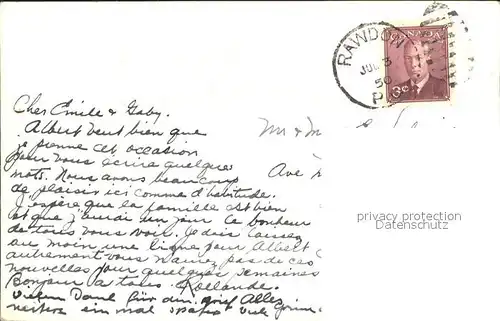 RAWDON
JUL 3
50
P.Q.
CANADA
3¢
Cher Emile & Gaby.
Albert veut bien que
je prenne cet occasion
pour vous écrire quelques
mots. Nous avons beaucoup
de plaisir ici comme d'habitude.
J'espère que la famille est bien
et que j'aurai un jour le bonheur
de tous vous voir. Je dois laisser
au moin une ligne pour Albert
autrement vous n'aurez pas de ces
nouvelles pour quelques semaines
Bonjour a tous Rollande.
Vielen Dank für den Alles
ein mal später viele
Mr & M
Ave
privacy protection
Datenschutz